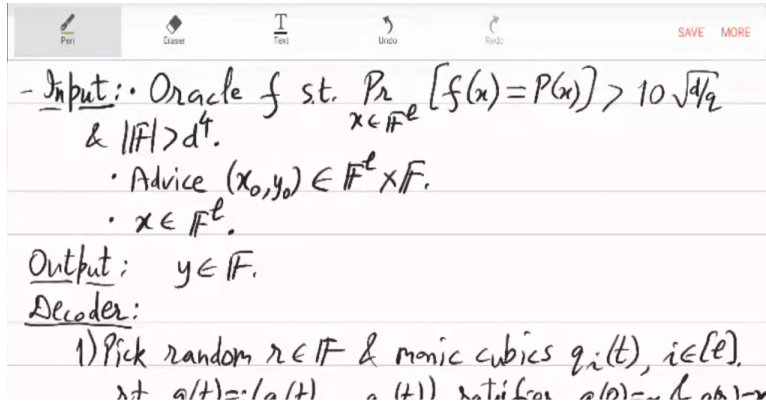 Pen Eraser Text Undo Redo SAVE MORE
- Input: • Oracle f s.t. Pr_{x∈𝔽^ℓ} [f(x) = P(x)] > 10 √d/q
& |𝔽| > d⁴.
• Advice (x₀, y₀) ∈ 𝔽^ℓ × 𝔽.
• x ∈ 𝔽^ℓ.
Output: y ∈ 𝔽.
Decoder:
1) Pick random r ∈ 𝔽 & monic cubics qᵢ(t), i ∈ [ℓ].